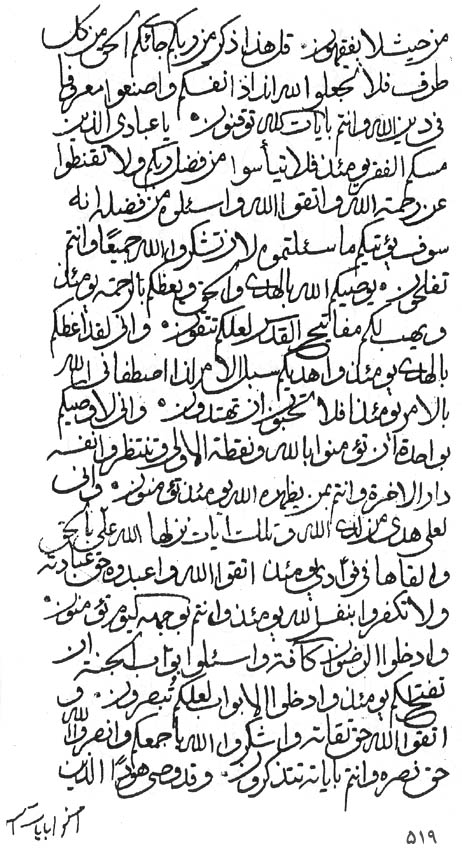 من حيث لا يفقهون. قل هذا ذكر من ربكم جائكم الحق من كل
طرف فلا تجعلوا لله انداد انفسكم واصنعوا معرفها
في دين الله وانتم بايات الله توقنون. يا عبادي الذين
مسكم الفقر يومئذ فلا تيأسوا من فضل ربكم ولا تقنطوا
عن رحمة الله واتقوا الله واسئلوه من فضله انه
سوف يؤتيكم ما سئلتموه لان تشكروا لله جميعا وانتم
تفلحون. يوصيكم الله بالهدى والحق ويعظكم بالرحمة يومئذ
ويهب لكم مفاتيح القدس لعلكم تتقون. واني لقد اعظكم
بالهدى يومئذ واهديكم سبل الامر لذا اصطفاني الله
بالامر يومئذ فلا تحبون ان تهتدون. واني لاوصيكم
بواحدة ان تؤمنوا بالله ونقطة الاولى وتنتظروا نفسه
دار الاخرة وانتم بمن يظهره الله يومئذ تؤمنون. واني
لعلى هدى من لدى الله وتلك ايات نزلها الله علي بالحق
والقاها في فؤادي يومئذ اتقوا الله واعبدوه حق عبادته
ولا تكفروا بنفس الله يومئذ وانتم بوجهه كيوم تؤمنون.
وادخلوا الرضوان كافة واسئلوا بواب الجنة ان
تفتح لكم يومئذ وادخلوا الابواب لعلكم تبصرون. و
اتقوا الله حق تقاته واشكروا الله باجمعكم وانصروا الله
حق نصره وانتم باياته تتذكرون. وقد وصى هودا الذين
امنوا بايات
۵۱۹